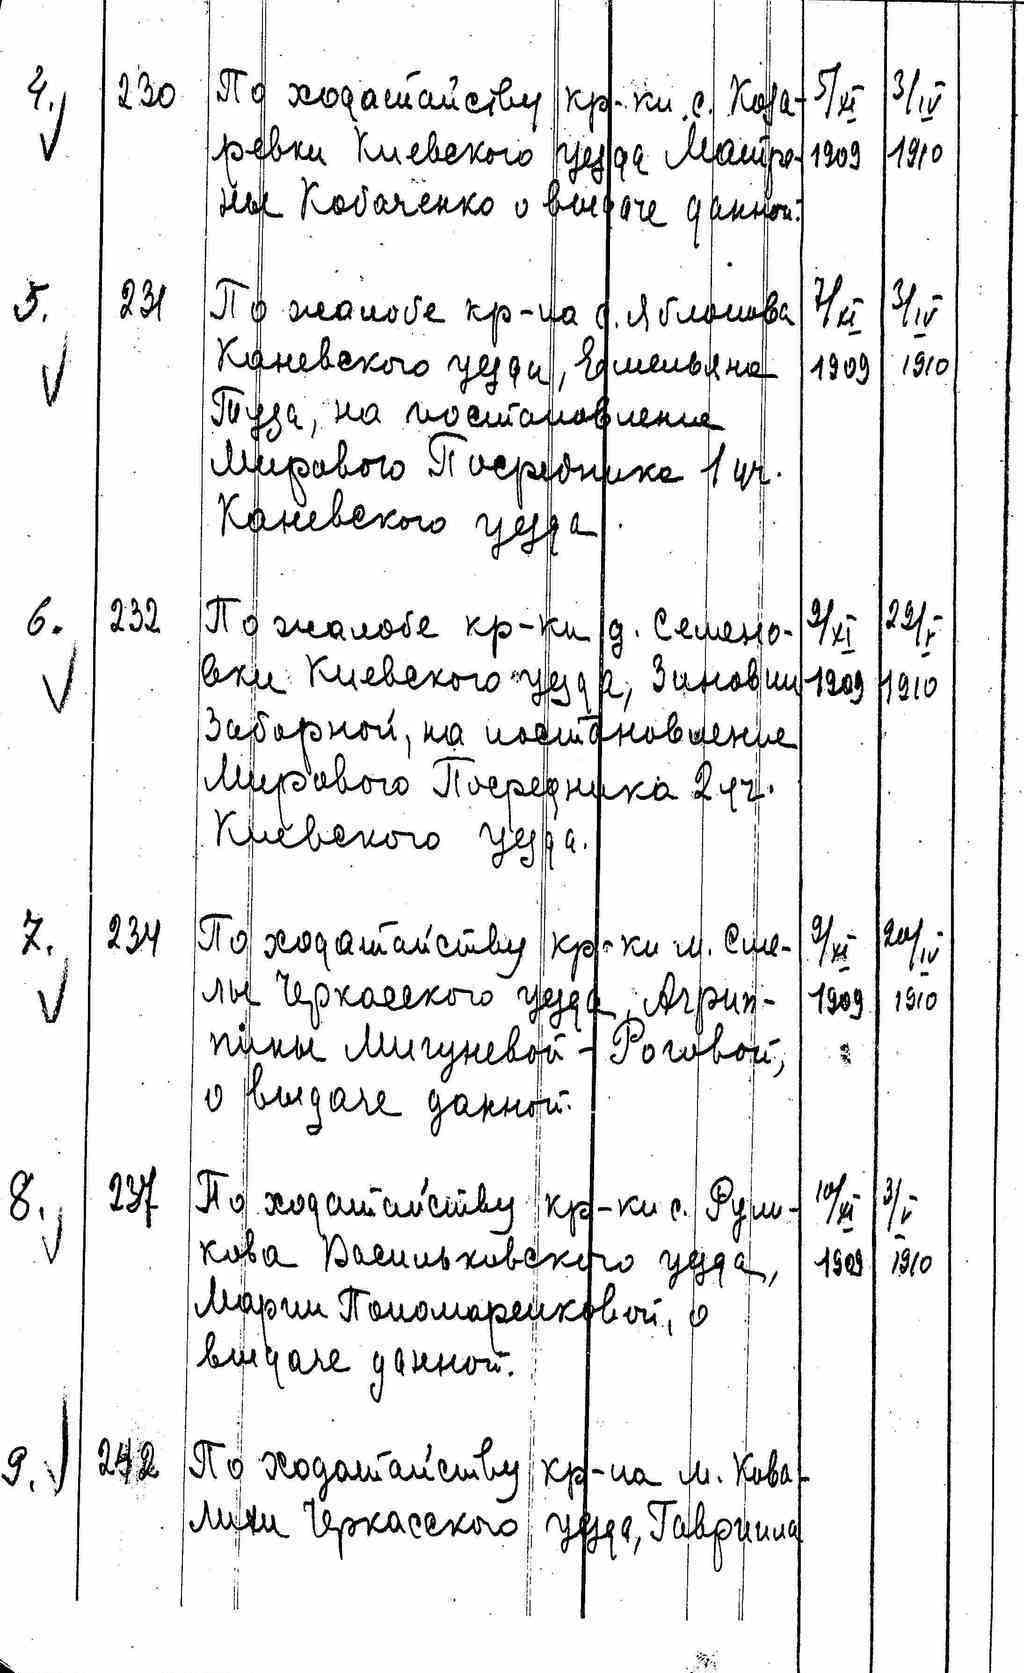 4. 230 По ходатайству кр-ки с. Коза- 5/XI 3/IV
ревки Киевского уезда Матре- 1909 1910
ны Кобаченко о выдаче данной.
5. 231 По жалобе кр-на с. Яблонова 7/XI 3/IV
Каневского уезда, Емельяна 1909 1910
Туза, на постановление
Мирового Посредника 1 уч.
Каневского уезда.
6. 232 По жалобе кр-ки д. Семено- 9/XI 29/V
вки Киевского уезда, Зиновии 1909 1910
Заборной, на постановление
Мирового Посредника 2 уч.
Киевского уезда.
7. 234 По ходатайству кр-ки м. Сме- 9/XI 20/IV
лы Черкасского уезда, Агрип- 1909 1910
пины Мигуневой-Роговой,
о выдаче данной.
8. 237 По ходатайству кр-ки с. Рули- 10/XI 3/V
кова Васильковского уезда, 1909 1910
Марии Пономаренковой, о
выдаче данной.
9. 242 По ходатайству кр-на м. Кова-
лихи Черкасского уезда, Гавриила